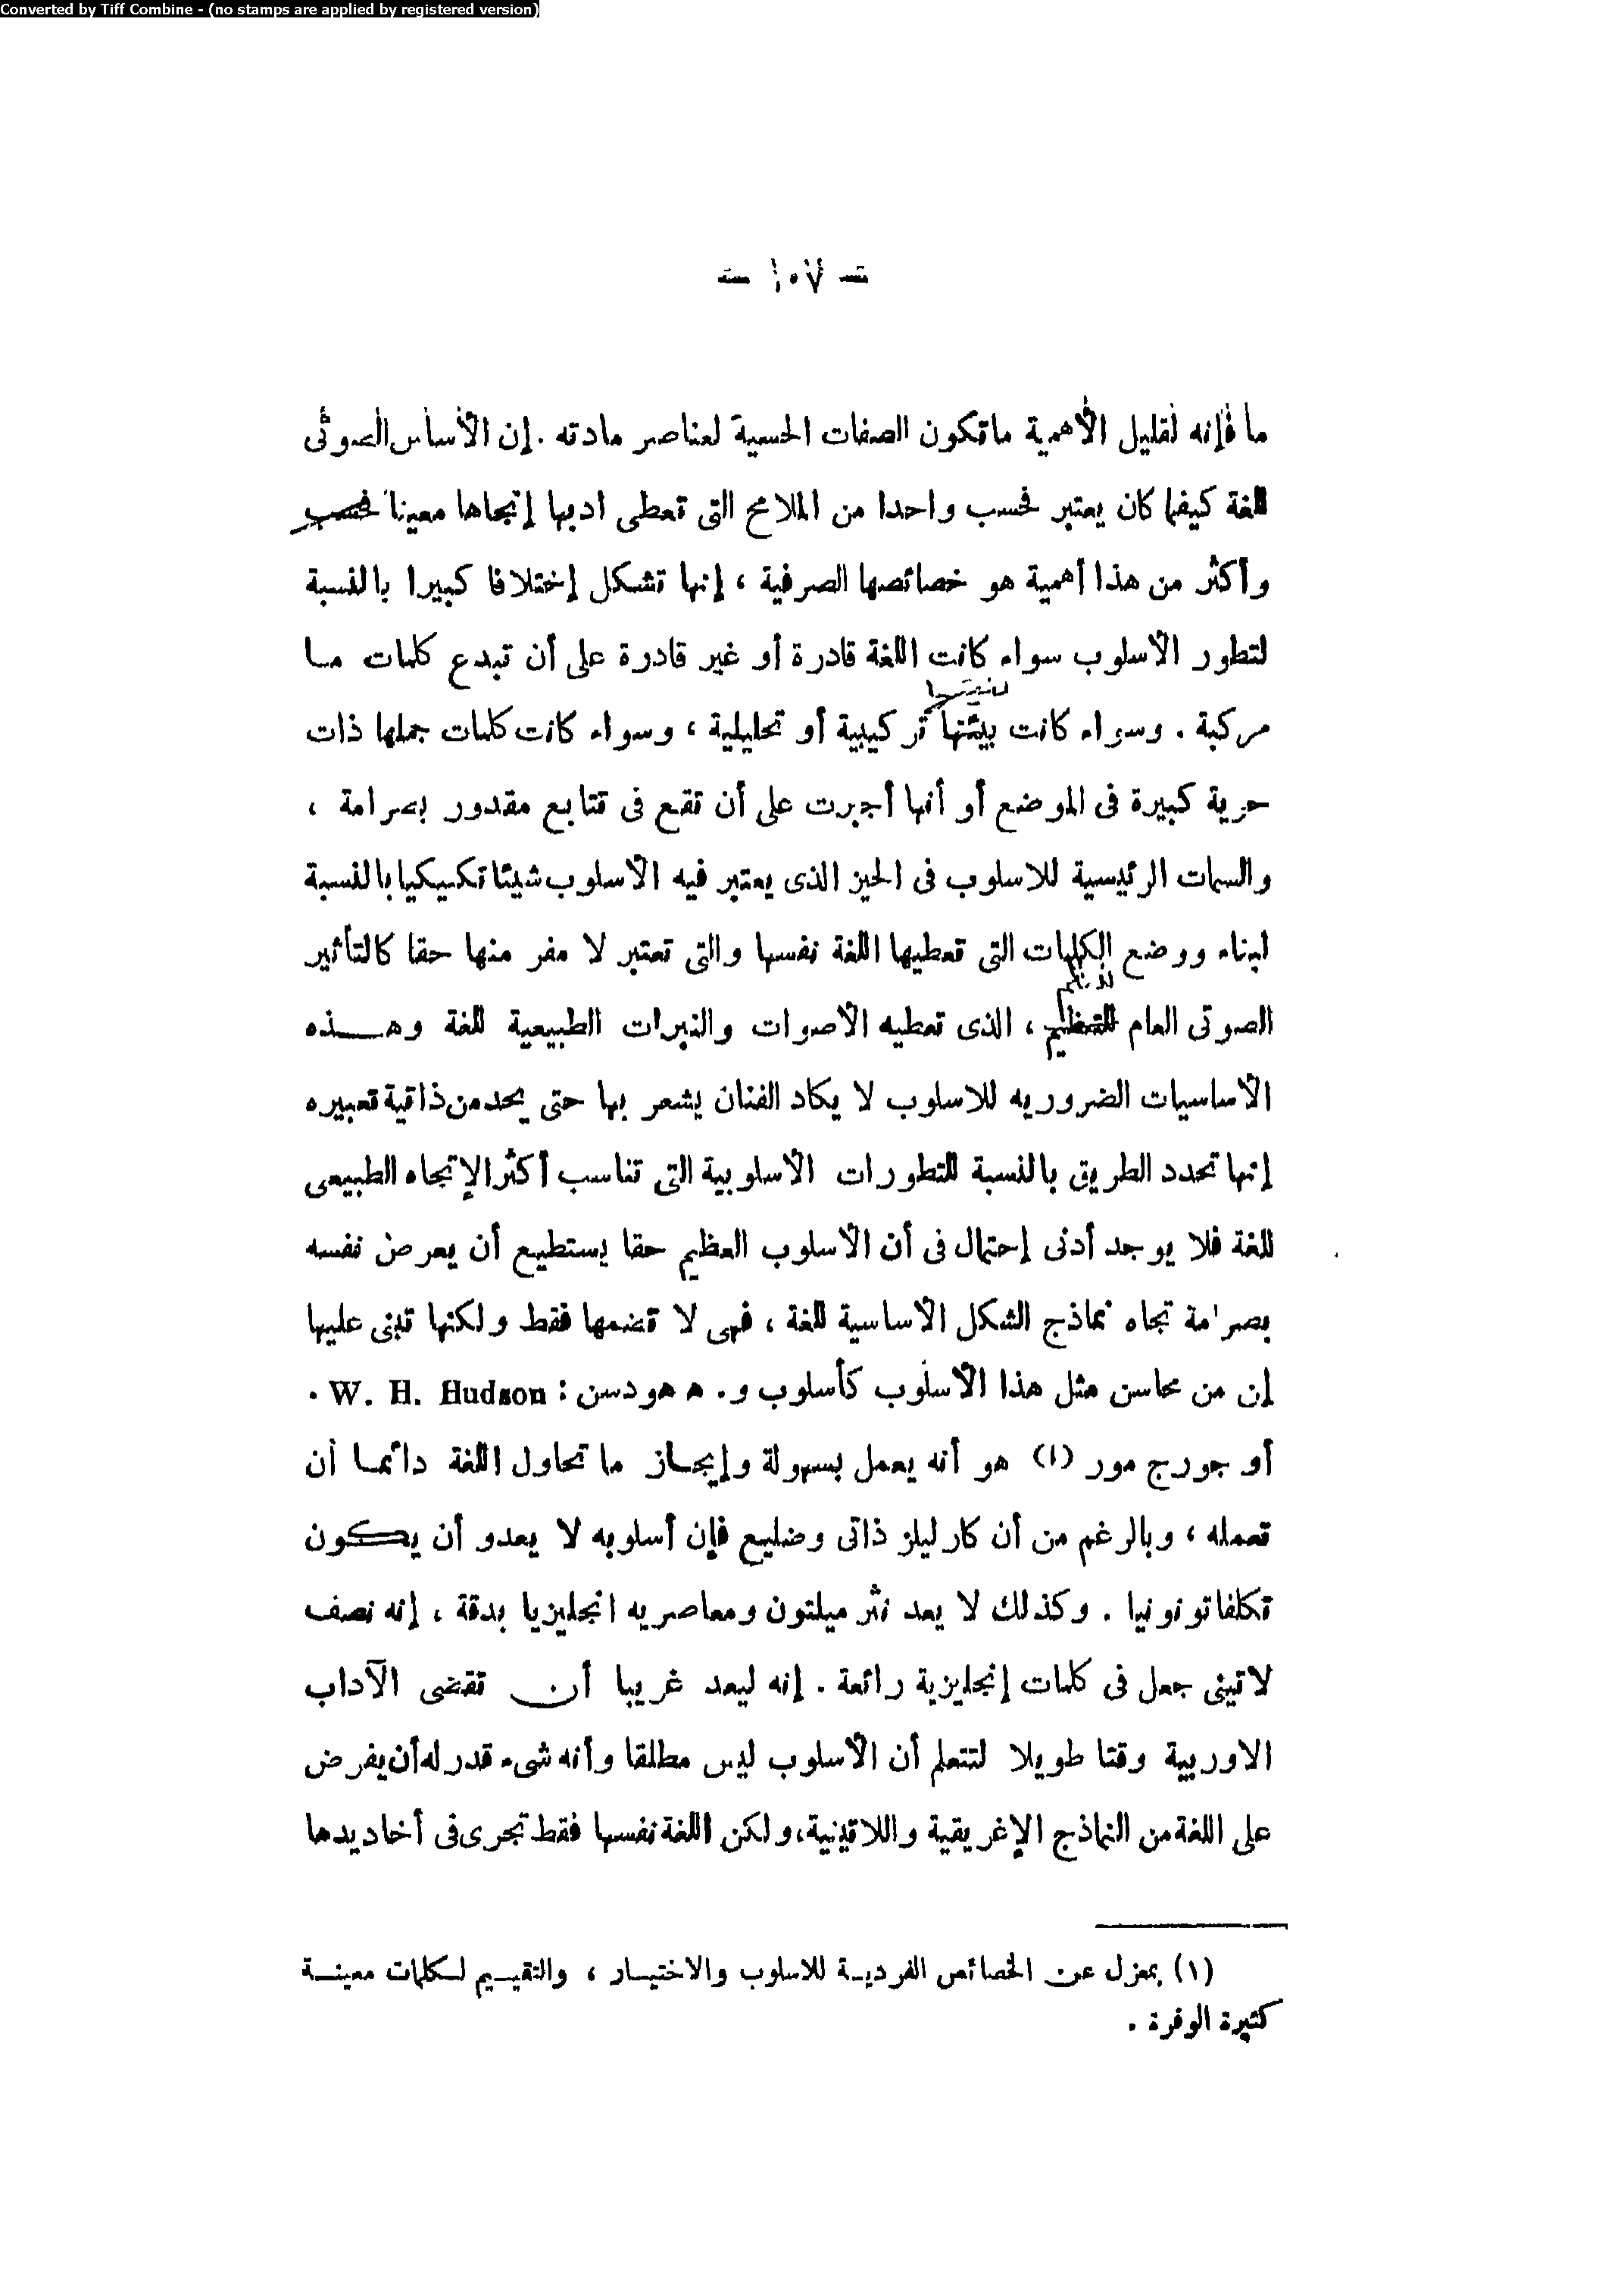 Converted by Tiff Combine - (no stamps are applied by registered version)
— ١٠٧ —
ما فإنه لقليل الأهمية ماتكون الصفات الحسية لعناصر مادته . إن الأساس الصوتى
للغة كيفما كان يعتبر فحسب واحدا من الملامح التى تعطى ادبها إتجاها معينا فحسب
وأكثر من هذا أهمية هو خصائصها الصرفية ، إنها تشكل إختلافا كبيرا بالنسبة
لتطور الأسلوب سواء كانت اللغة قادرة أو غير قادرة على أن تبدع كلمات ما
مركبة . وسواء كانت بيئتها تركيبية أو تحليلية ، وسواء كانت كلمات جملها ذات
حرية كبيرة فى الموضع أو أنها أجبرت على أن تقع فى تتابع مقدور بصرامة ،
والسمات الرئيسية للاسلوب فى الحيز الذى يعتبر فيه الأسلوب شيئا تكنيكيا بالنسبة
لبناء ووضع الكلمات التى تعطيها اللغة نفسها والتى تعتبر لا مفر منها حقا كالتأثير
الصوتى العام للتنظيم ، الذى تعطيه الأصوات والنبرات الطبيعية للغة وهــذه
الأساسيات الضروريه للاسلوب لا يكاد الفنان يشعر بها حتى يحد من ذاتية تعبيره
إنها تحدد الطريق بالنسبة للتطورات الأسلوبية التى تناسب أكثر الإتجاه الطبيعى
للغة فلا يوجد أدنى إحتمال فى أن الأسلوب العظيم حقا يستطيع أن يعرض نفسه
بصرامة تجاه نماذج الشكل الأساسية للغة ، فهى لا تضمها فقط ولكنها تبنى عليها
إن من محاسن مثل هذا الأسلوب كأسلوب و. ه هودسن : W. H. Hudson .
أو جورج مور (١) هو أنه يعمل بسهولة وإيجاز ما تحاول اللغة دائما أن
تعمله ، وبالرغم من أن كارليلز ذاتى وضليع فإن أسلوبه لا يعدو أن يكون
تكلفا تونونيا . وكذلك لا يعد نثر ميلتون ومعاصريه انجليزيا بدقة ، إنه نصف
لاتينى جعل فى كلمات إنجليزية رائعة . إنه ليعد غريبا أن تقضى الآداب
الاوربية وقتا طويلا لتتعلم أن الأسلوب ليس مطلقا وأنه شىء قدر له أن يفرض
على اللغة من النماذج الإغريقية واللاتينية، ولكن اللغة نفسها فقط تجرى فى أخاديدها
(١) بمعزل عن الخصائص الفرديـة للاسلوب والاختيـار ، والتقييـم لـكلمات معينـة
كثيرة الوفرة .